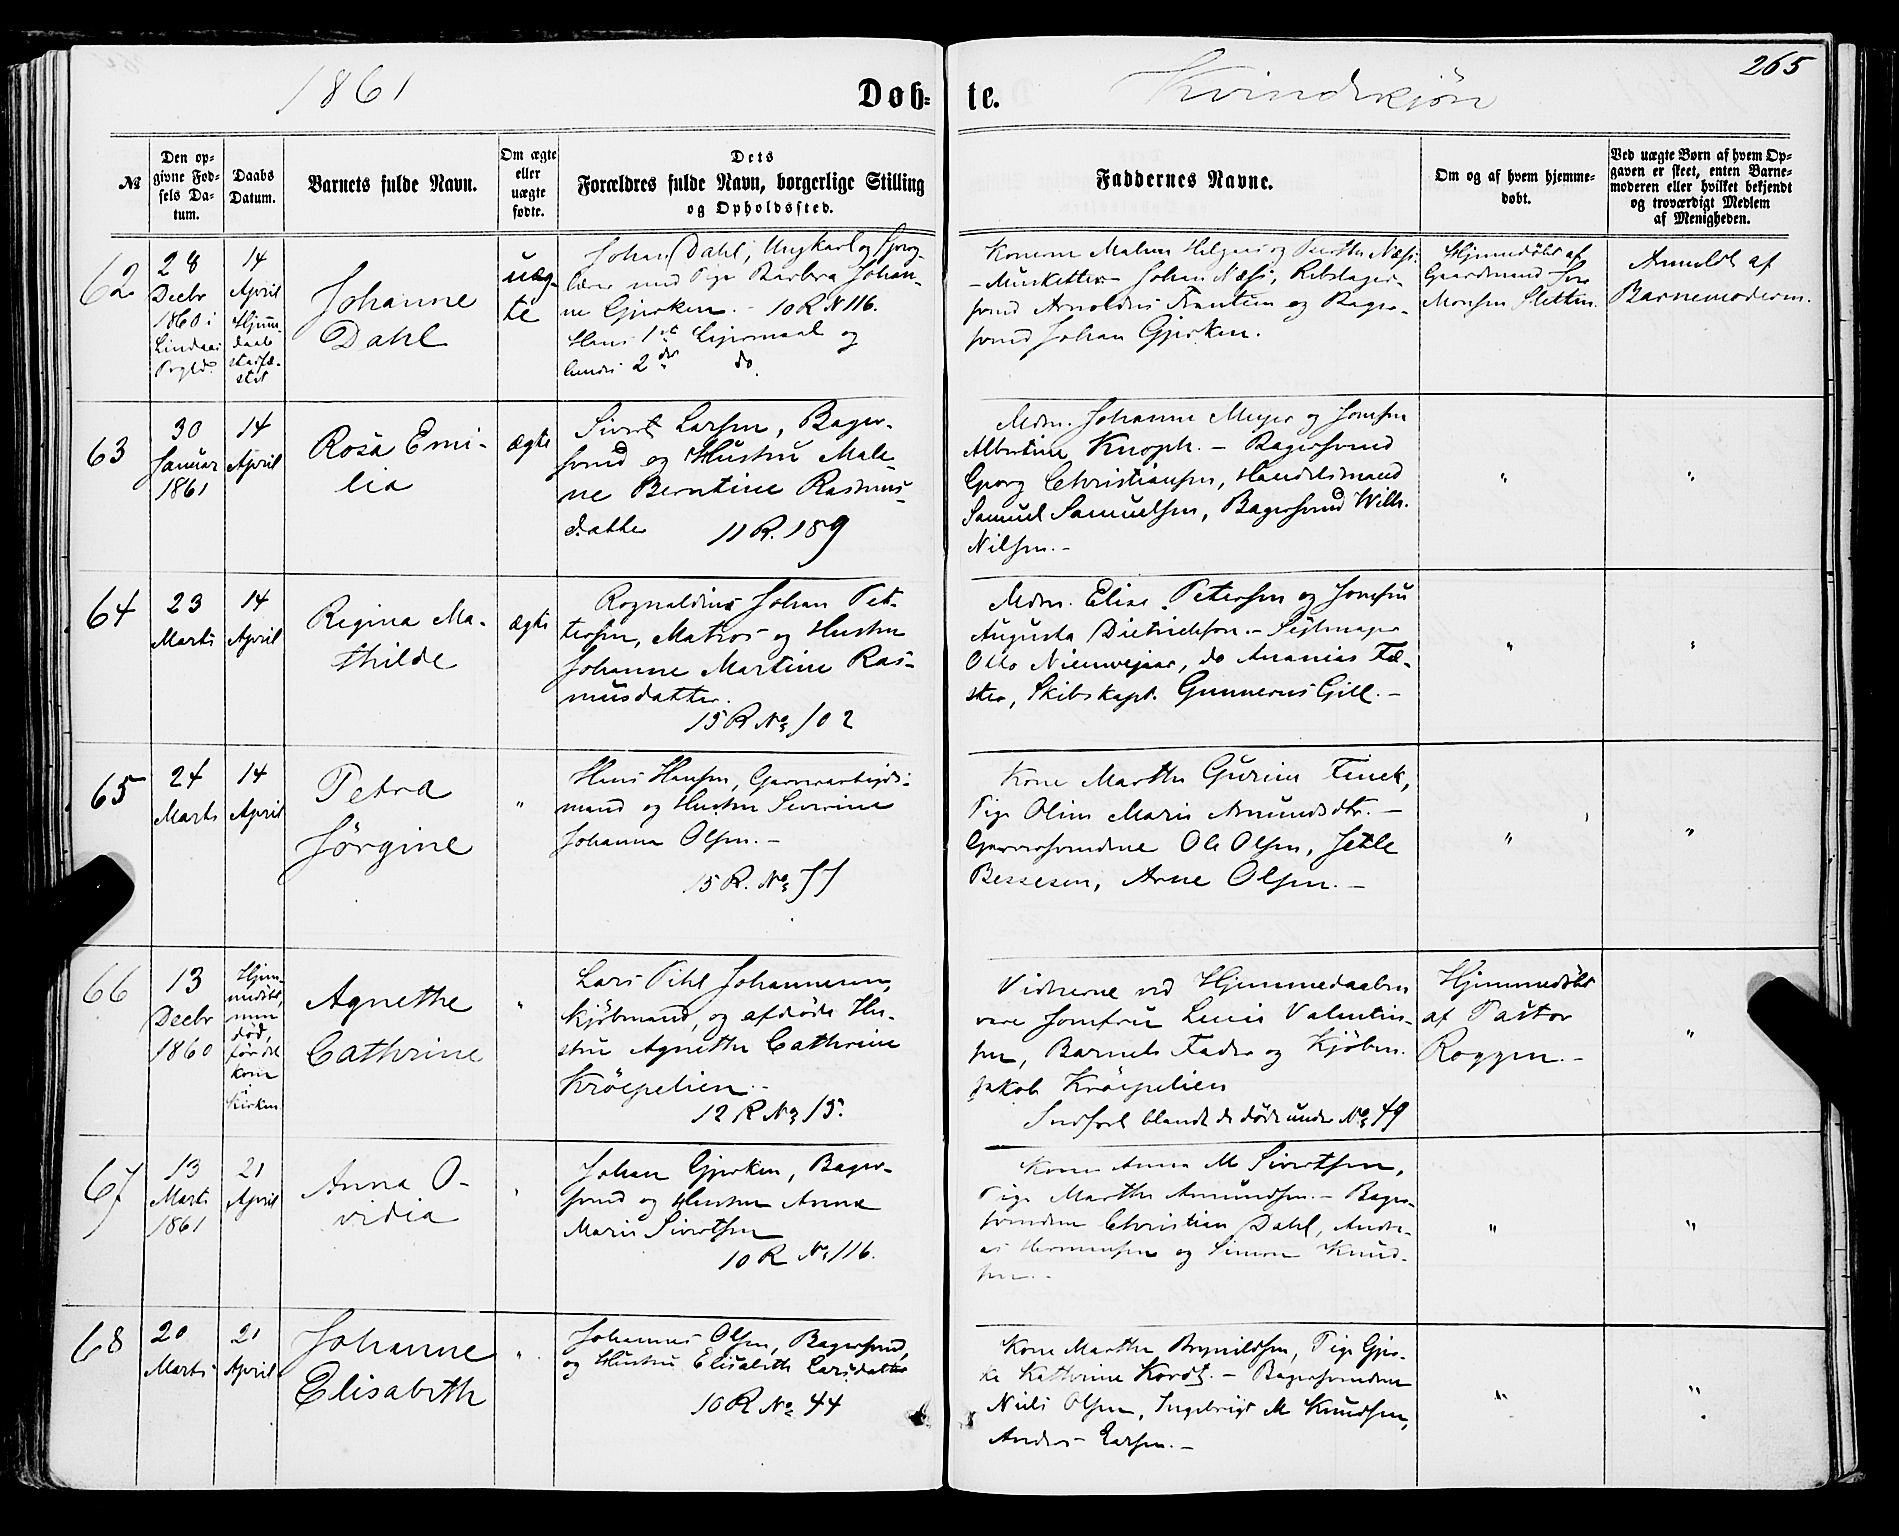 1861
Døb-
te.
Kvindekjøn
265
№
Den op-
givne Fød-
sels Da-
tum.
Daabs
Datum.
Barnets fulde Navn.
Om ægte
eller
uægte
fødte.
Dets
Forældres fulde Navn, borgerlige Stilling
og Opholdssted.
Faddernes Navne.
Om og af hvem hjemme-
døbt.
Ved uægte Børn af hvem Op-
gaven er skeet, enten Barne-
moderen eller hvilket bekjendt
og troværdigt Medlem
af Menigheden.
62
28
Decbr
1860 i
Lindaas
Prgld.
14
April
Hjem-
daab
stadfæ-
stet
Johanne
Dahl
uæg-
te
Johan Dahl, Ungkarl og
med Pige Barbra Johan-
ne Gjerken. - 10 R № 116.
Hans 1ste Leiermaal og
hendes 2det do.
Konerne Malene Helgaas og Dorthe Næss.
- Johan Næss, Rebslager-
svend Arnoldus og Bager-
svend Johan Gjerken.
Hjemmedøbt af
Gaardmand
Monsen Sletten.
Anmeldt af
Barnemoderen.
63
30
Januar
1861
14
April
Rosa Emi-
lia
ægte
Sivert Larsen, Bager-
svend og Hustru Male-
ne Berntine Rasmus-
datter 11 R. 189
Mdm. Johanne Meyer og Jomfru
Albertine Knoph. - Bagersvend
Georg Christiansen, Handelsmand
Samuel Samuelsen, Bagersvend Willh.
Nilsen. -
"
"
64
23
Marts
14
April
Regina Ma-
thilde
ægte
Rognaldius Johan Pet-
tersen, Matros og Hustru
Johanne Martine Ras-
musdatter.
15 R № 102
Mdm. Elise Petersen og Jomfru
Augusta Dietrichson. - Sejlmager
Otto Nieuwejaar, do Ananias Fæ-
ster, Skibskapt. Gunnerus Gill. -
"
"
65
24
Marts
14
April
Petra
Jørgine
"
Hans Hansen, Garverarbejds-
mand og Hustru Severine
Johanna Olsen. -
15 R. № 77
Kone Marthe Gurine Finck,
Pige Oline Marie Amundsdtr. -
Garversvendene Ole Olsen, Jetle
Bessesen, Arne Olsen. -
"
"
66
13
Decbr
1860
Hjem-
medøbt,
men
død,
før det
kom
i
Kirken
Agnethe
Cathrine
"
Lars Pihl Johannesen,
Kjøbmand, og afdøde Hu-
stru Agnethe Cathrine
Krøepelien. -
12 R № 15.
Vidnerne ved Hjemmedaaben
vare Jomfru Lucie Valentin-
sen, Barnets Fader og Kjøbm.
Jakob Krøepelien
Indført blandt de døde under № 49
Hjemmedøbt
af Pastor
Roggen. -
"
67
13
Marts
1861
21
April
Anna O-
vidia
"
Johan Gjerken, Bager-
svend og Hustru Anna
Marie Sivertsen
10 R № 116.
Kone Anna M Sivertsen,
Pige Marthe Amundsen. - Bager-
svendene Christian Dahl, Andre-
as Hermensen og Simon Knud-
sen. -
"
"
68
20
Marts
21
April
Johanne
Elisabeth
"
Johannes Olsen, Bagersvend,
og Hustru Elisabeth Larsdatter
10 R № 44
Kone Marthe Brynildsen, Pige Gjer-
ke Kathrine Kordt. - Bagersvendene
Niels Olsen, Ingebrigt M Knudsen,
Anders Larsen. -
"
"